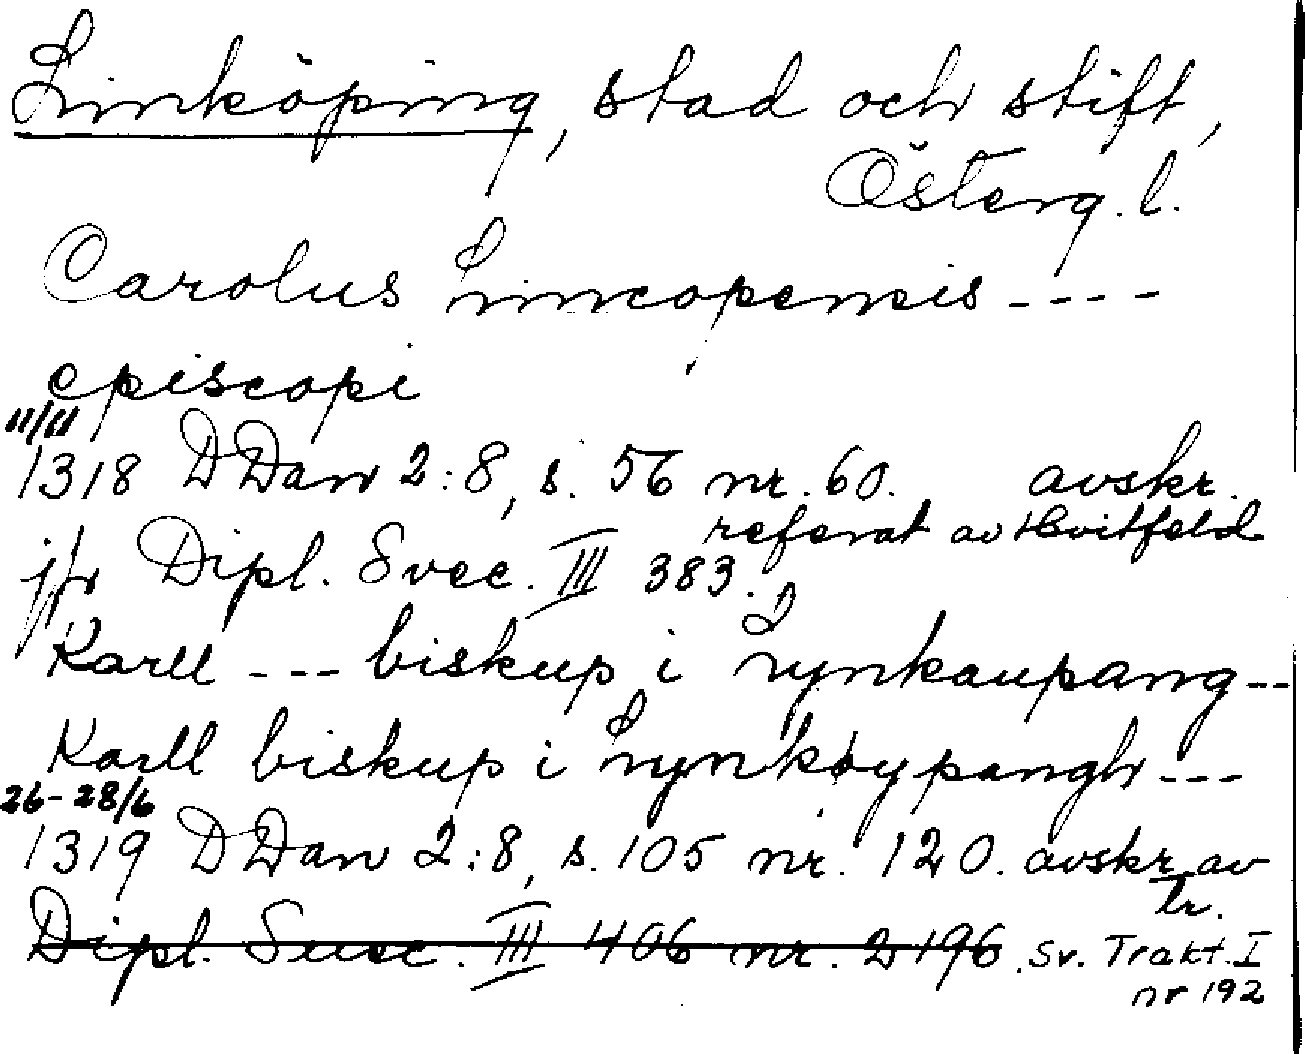 Linköping, stad och stift,
Österg. l.
Carolus Lincopensis ----
episcopi
11/11
1318 DDan 2:8, s. 56 nr. 60. avskr.
referat av Hvitfeld
jfr Dipl. Svec. III 383.
Karll --- biskup i Lynkaupang --
Karll biskup i Lynkøypangh ---
26-28/6
1319 DDan 2:8, s. 105 nr. 120. avskr. av
tr.
Dipl. Suec. III 406 nr. 2196. Sv. Trakt. I
nr 192